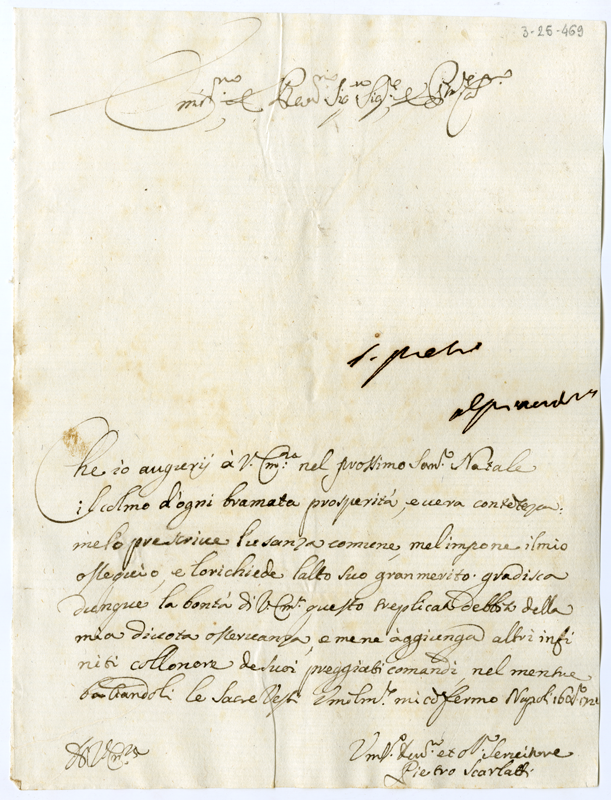 3-26-469
Em.mo e Rev.mo Sig.re Sig.re e
Che io augurij à V. Em.za nel prossimo San.to Natale
il colmo d'ogni bramata prosperità, e vera contetezza:
melo prescrive lusanza comune mel'impone il mio
ossequio, e lo richiede l'alto suo gran merito. gradisca
dunque la bontà di V. Em.za questo treplicato debbito della
mia divota osservanza, e mene aggiunga altri infi
niti coll'onore de suoi preggiati comandi, nel mentre
baciandoli le Sacre Vesti Umilm.te mi confermo Napoli 16
Di V. Em.za
Um.o Dev.o et Obl.o Servitore
Pietro Scarlatti